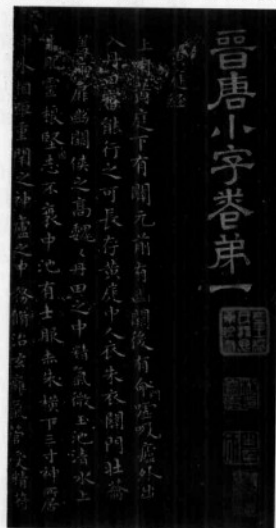 晉唐小字卷第一
黃庭經
上有黃庭下有關元前有幽闕後有命門噓吸廬外出
入丹田審能行之可長存黃庭中人衣朱衣關門壯籥
蓋兩扉幽闕俠之高魏〻丹田之中精氣微玉池清水上
生肥靈根堅志不衰中池有士服赤朱橫下三寸神所居
中外相距重閉之神廬之中務脩治玄氣管受精符